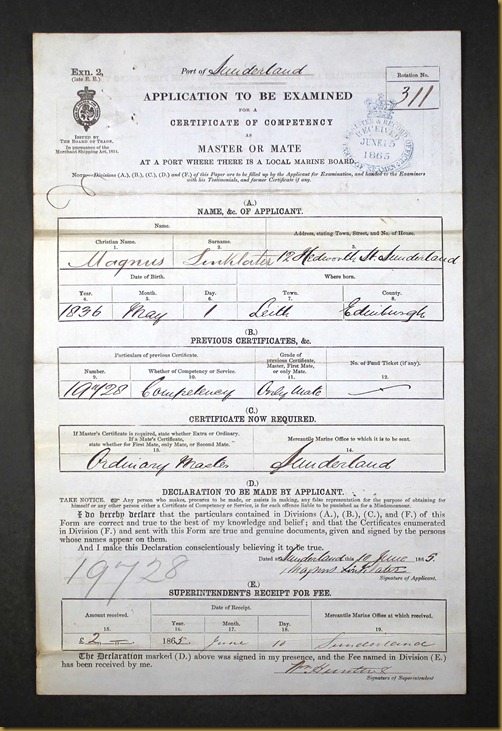 Exn. 2,
(late E. E.)
Port of Sunderland
Rotation No.
311
APPLICATION TO BE EXAMINED
FOR A
CERTIFICATE OF COMPETENCY
AS
MASTER OR MATE
AT A PORT WHERE THERE IS A LOCAL MARINE BOARD.
ISSUED BY
THE BOARD OF TRADE,
In pursuance of the
Merchant Shipping Act, 1854.
RECEIVED
JUNE 15
1865
NOTE.—Divisions (A.), (B.), (C.), (D.) and (F.) of this Paper are to be filled up by the Applicant for Examination, and handed to the Examiners
with his Testimonials, and former Certificate if any.
(A.)
NAME, &c. OF APPLICANT.
Name.
Address, stating Town, Street, and No. of House.
Christian Name.
Surname.
1.
2.
3.
Magnus Linklater 12 Hedworth St. Sunderland
Date of Birth.
Where born.
Year.
Month.
Day.
Town.
County.
4.
5.
6.
7.
8.
1836 May 1 Leith Edinburgh
(B.)
PREVIOUS CERTIFICATES, &c.
Particulars of previous Certificate.
Grade of
previous Certificate,
Master, First Mate,
or only Mate.
No. of Fund Ticket (if any).
Number.
Whether of Competency or Service.
9.
10.
11.
12.
19728 Competency Only Mate
(C.)
CERTIFICATE NOW REQUIRED.
If Master's Certificate is required, state whether Extra or Ordinary.
If a Mate's Certificate,
state whether for First Mate, only Mate, or Second Mate.
Mercantile Marine Office to which it is to be sent.
13.
14.
Ordinary Master Sunderland
(D.)
DECLARATION TO BE MADE BY APPLICANT.
TAKE NOTICE. Any person who makes, procures to be made, or assists in making, any false representation for the purpose of obtaining for
himself or any other person either a Certificate of Competency or Service, is for each offence liable to be punished as for a Misdemeanour.
I do hereby declare that the particulars contained in Divisions (A.), (B.), (C.), and (F.) of this
Form are correct and true to the best of my knowledge and belief; and that the Certificates enumerated
in Division (F.) and sent with this Form are true and genuine documents, given and signed by the persons
whose names appear on them.
And I make this Declaration conscientiously believing it to be true.
Dated at Sunderland this 10 June 1865.
Magnus Linklater
Signature of Applicant.
19728
(E.)
SUPERINTENDENT'S RECEIPT FOR FEE.
Amount received.
Date of Receipt.
Mercantile Marine Office at which received.
Year.
Month.
Day.
15.
16.
17.
18.
19.
£ 2 1865 June 10 Sunderland
The Declaration marked (D.) above was signed in my presence, and the Fee named in Division (E.)
has been received by me.
Signature of Superintendent